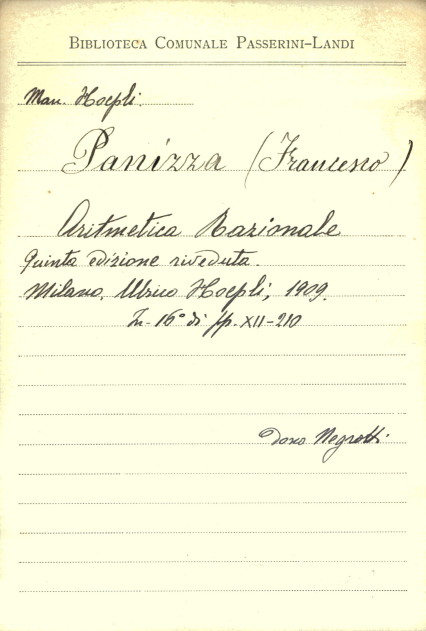 BIBLIOTECA COMUNALE PASSERINI-LANDI
Man. Hoepli.
Panizza (Francesco)
Aritmetica Razionale
Quinta edizione riveduta.
Milano, Ulrico Hoepli, 1909.
In-16° di pp. XII-210
Dono Negrotti.